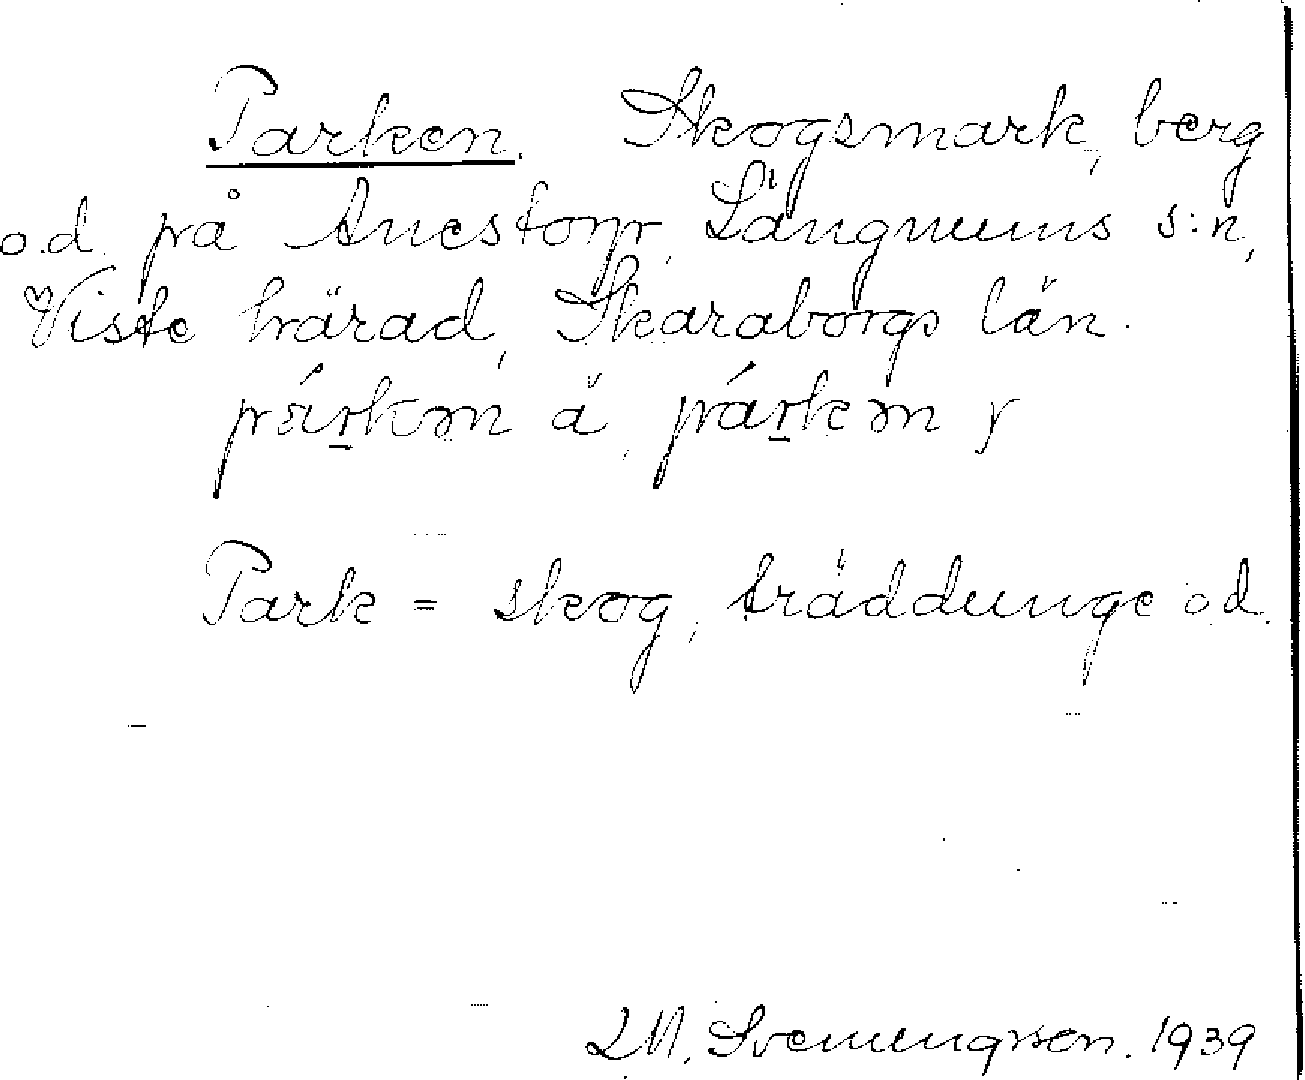 Parken. Skogsmark, berg
o.d. på Anestorp, Längnums s:n,
Viste härad, Skaraborgs län.
Park = skog, träddunge o.d.
L.M. Svennungsson. 1939